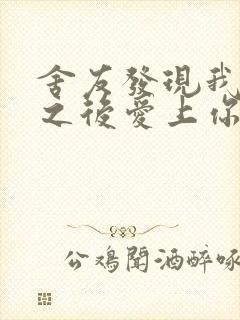 舍友發現我
之後愛上你
公鸡聞酒醉啄